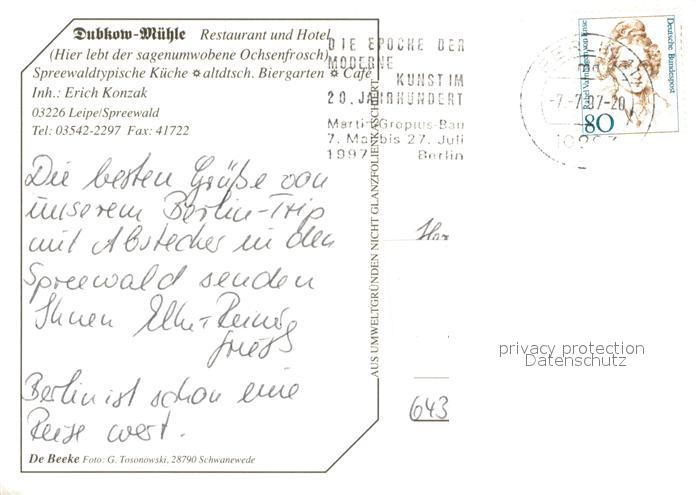 Dubkow-Mühle Restaurant und Hotel
(Hier lebt der sagenumwobene Ochsenfrosch)
Spreewaldtypische Küche ✲ altdtsch. Biergarten ✲ Café
Inh.: Erich Konzak
03226 Leipe/Spreewald
Tel: 03542-2297 Fax: 41722
Die besten Grüße von
unserem Berlin-Trip
mit Abstecher in den
Spreewald senden
Ihnen Elke +
Berlin ist schon eine
Reise wert.
De Beeke Foto: G. Tosonowski, 28790 Schwanewede
AUS UMWELTGRÜNDEN NICHT GLANZFOLIENKASCHIERT
DIE EPOCHE DER
MODERNE
KUNST IM
20. JAHRHUNDERT
Martin-Gropius-Bau
7. Mai bis 27. Juli
1997 Berlin
BERLIN
-7.-7.97-20
Deutsche Bundespost
Rahel Varnhagen von Ense
80
643
privacy protection
Datenschutz